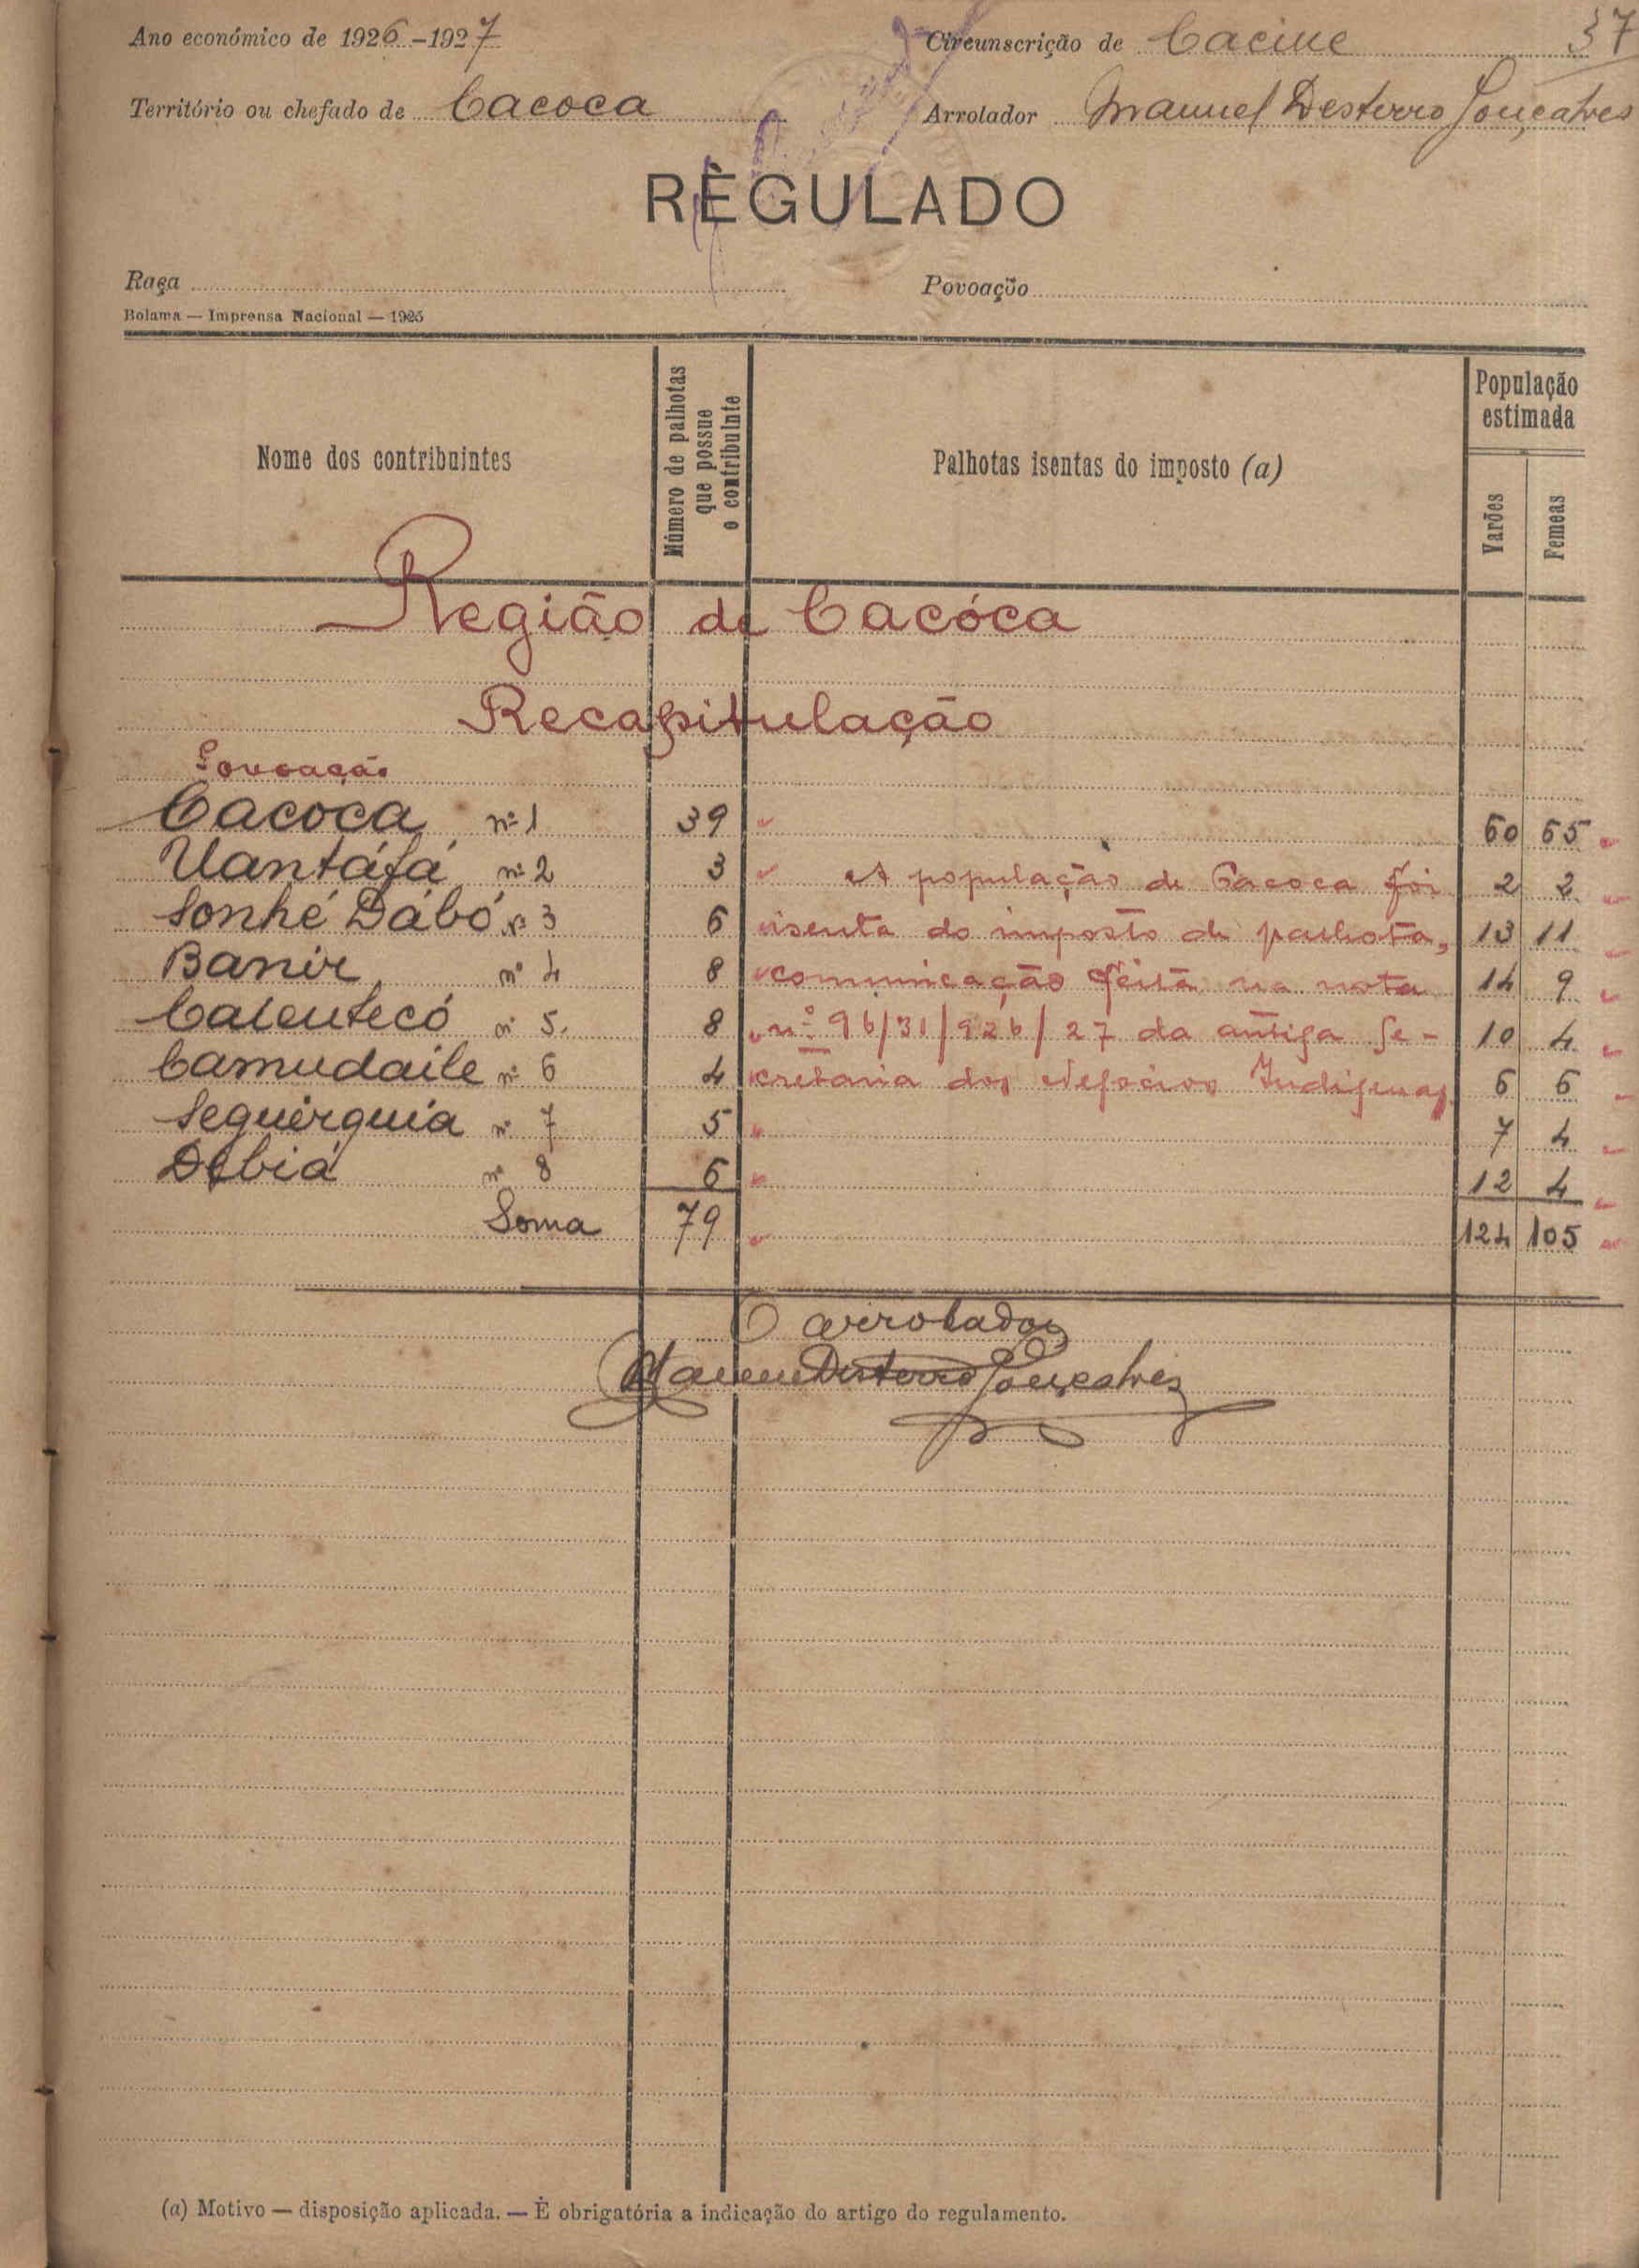 Ano económico de 1926-1927
Circunscrição de Cacine
37
Território ou chefado de Cacoca
Arrolador Manuel Desterro Gonçalves
REGULADO
Raça
Povoação
Bolama — Imprensa Nacional — 1925
Nome dos contribuintes
Número de palhotas que possue o contribuinte
Palhotas isentas do imposto (a)
População estimada
Varões
Femeas
Região de Cacóca
Recapitulação
Povoação
Cacoca nº 1 39 60 65
Uantáfá nº 2 3 A população de Cacoca foi 2 2
Sonhé Dábó nº 3 6 isenta do imposto de palhota, 13 11
Banir nº 4 8 comunicação feita na nota 14 9
Calentecó nº 5. 8 nº 96/31/926/27 da antiga Se- 10 4
Camudaile nº 6 4 cretaria dos Negócios Indigenas. 6 6
Sequerquia nº 7 5 7 4
Debiá nº 8 6 12 4
Soma 79 124 105
O arrolador
Manuel Desterro Gonçalves
(a) Motivo — disposição aplicada. — É obrigatória a indicação do artigo do regulamento.